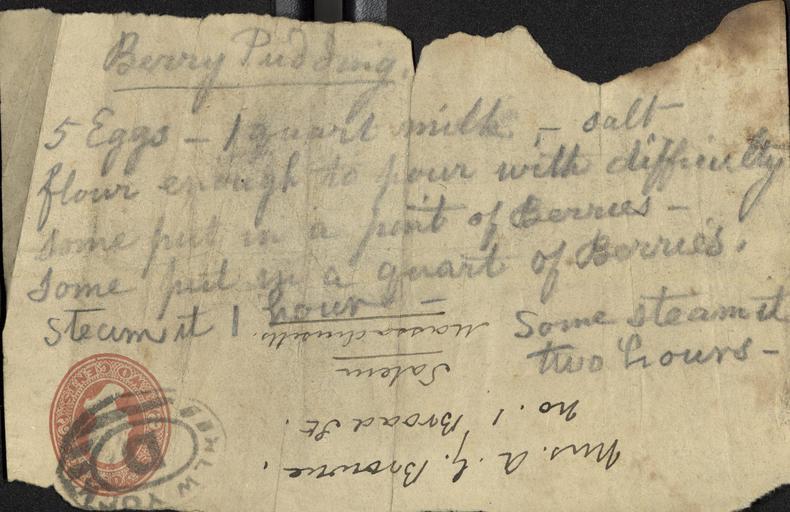 Berry Pudding.
5 Eggs – 1 quart milk, – salt
flour enough to pour with difficulty
some put in a pint of Berries –
Some put in a quart of Berries.
Steam it 1 hour –
Some steam it
two hours –
Mrs. A. G. Browne.
No. 1 Broad St.
Salem
Massachusetts.
NEW YORK